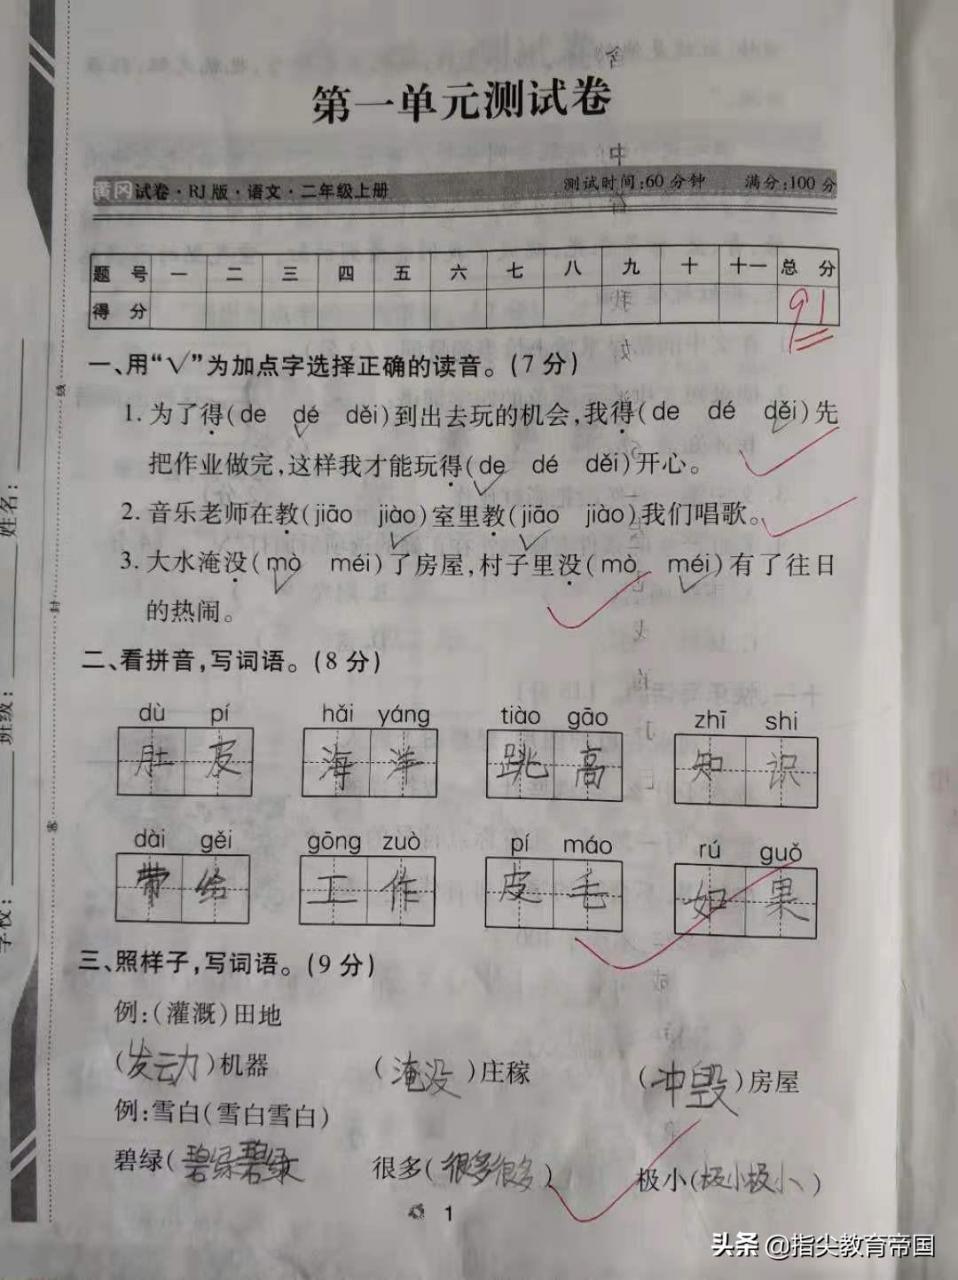 第一单元测试卷
黄冈试卷·RJ版·语文·二年级上册 测试时间:60分钟 满分:100分
题号 一 二 三 四 五 六 七 八 九 十 十一 总分
得分 91
一、用“√”为加点字选择正确的读音。(7分)
1. 为了得(de dé děi)到出去玩的机会,我得(de dé děi)先
把作业做完,这样我才能玩得(de dé děi)开心。
2. 音乐老师在教(jiāo jiào)室里教(jiāo jiào)我们唱歌。
3. 大水淹没(mò méi)了房屋,村子里没(mò méi)有了往日
的热闹。
二、看拼音,写词语。(8分)
dù pí hǎi yáng tiào gāo zhī shi
肚皮 海洋 跳高 知识
dài gěi gōng zuò pí máo rú guǒ
带给 工作 皮毛 如果
三、照样子,写词语。(9分)
例:(灌溉)田地
(发动)机器 (淹没)庄稼 (冲毁)房屋
例:雪白(雪白雪白)
碧绿(碧绿碧绿) 很多(很多很多) 极小(极小极小)
1
学校: 班级: 姓名:
密 封 线
头条 @指尖教育帝国